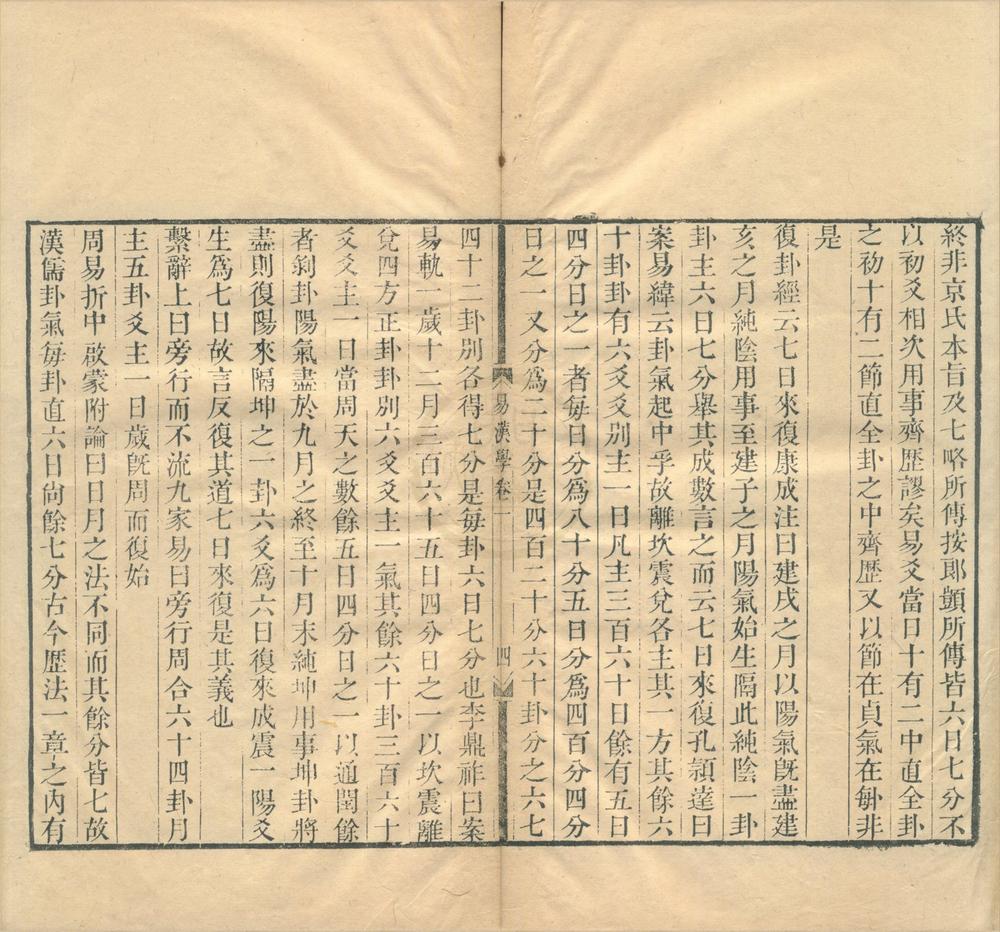 終非京氏本旨及七略所傳按郎顗所傳皆六日七分不
以初爻相次用事齊歷謬矣易爻當日十有二中直全卦
之初十有二節直全卦之中齊歷又以節在貞氣在毎非
是
復卦經云七日來復康成注曰建戌之月以陽氣旣盡建
亥之月純陰用事至建子之月陽氣始生隔此純陰一卦
卦主六日七分舉其成數言之而云七日來復孔穎達曰
案易緯云卦氣起中孚故離坎震兌各主其一方其餘六
十卦卦有六爻爻別主一日凡主三百六十日餘有五日
四分日之一者每日分爲八十分五日分爲四百分四分
日之一又分爲二十分是四百二十分六十卦分之六七
易漢學卷一
四
四十二卦別各得七分是每卦六日七分也李鼎祚曰案
易軌一歲十二月三百六十五日四分日之一以坎震離
兌四方正卦卦別六爻爻主一氣其餘六十卦三百六十
爻爻主一日當周天之數餘五日四分日之一以通閏餘
者剝卦陽氣盡於九月之終至十月末純坤用事坤卦將
盡則復陽來隔坤之一卦六爻爲六日復來成震一陽爻
生爲七日故言反復其道七日來復是其義也
繫辭上曰旁行而不流九家易曰旁行周合六十四卦月
主五卦爻主一日歲旣周而復始
周易折中啟蒙附論曰日月之法不同而其餘分皆七故
漢儒卦氣每卦直六日尙餘七分古今歷法一章之內有